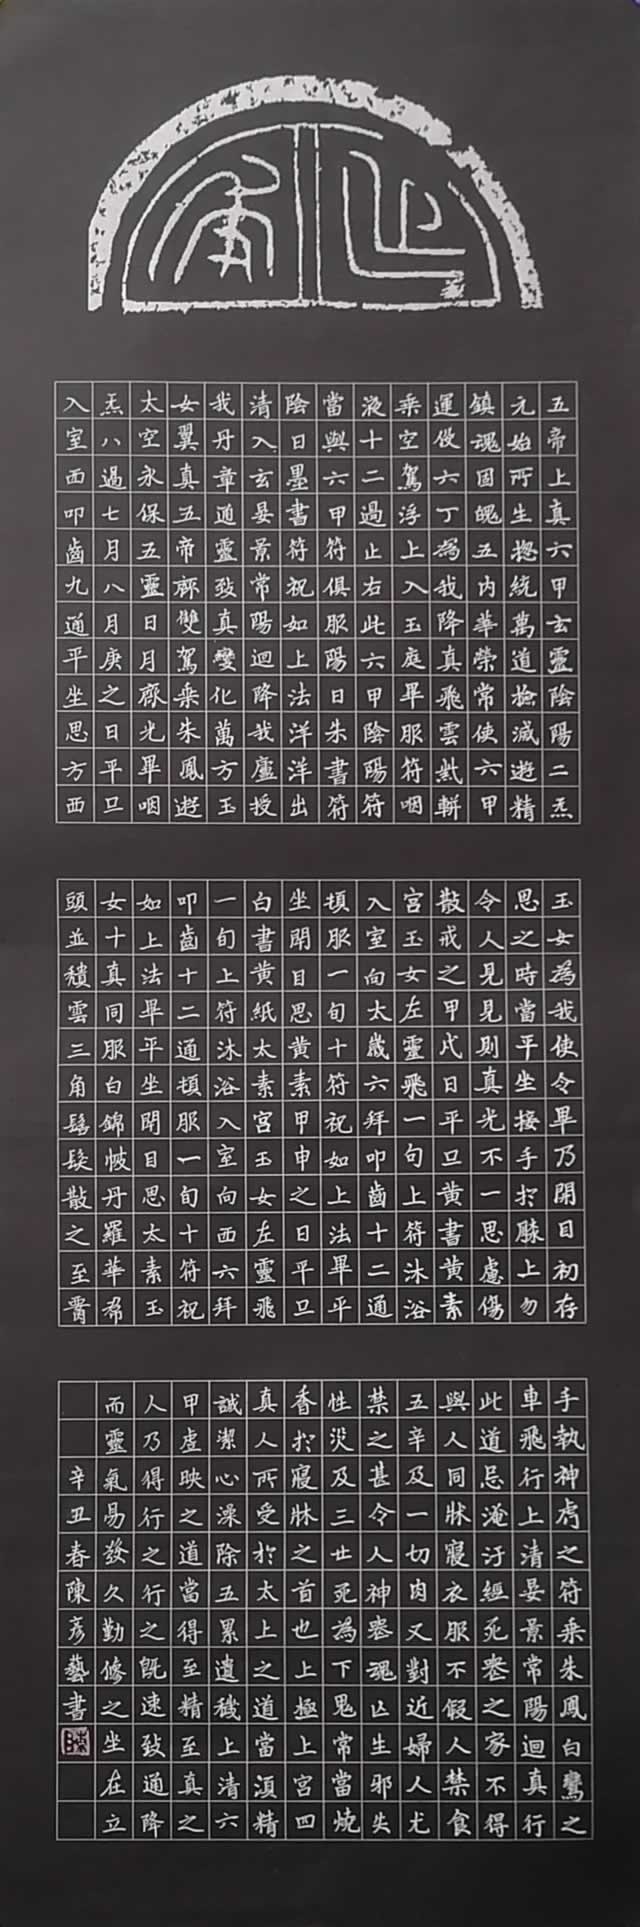 五帝上真六甲玄靈陰陽二炁
元始所生揔統萬道檢滅遊精
鎮魂固魄五內華榮常使六甲
運役六丁為我降真飛雲紫軿
乘空駕浮上入玉庭畢服符咽
液十二過止右此六甲陰陽符
當與六甲符俱服陽日朱書符
陰日墨書符祝如上法洋洋出
清入玄晏景常陽迴降我廬授
我丹章道靈致真變化萬方玉
女翼真五帝齊雙駕乘朱鳳遊
太空永保五靈日月齊光畢咽
炁八過七月八月庚之日平旦
入室西叩齒九通平坐思方西
玉女為我使令畢乃開目初存
思之時當平坐接手於膝上勿
令人見見則真光不一思慮傷
散戒之甲戌日平旦黃書黃素
宮玉女左靈飛一旬上符沐浴
入室向太歲六拜叩齒十二通
頓服一旬十符祝如上法畢平
坐閉目思黃素甲申之日平旦
白書黃紙太素宮玉女左靈飛
一旬上符沐浴入室向西六拜
叩齒十二通頓服一旬十符祝
如上法畢平坐閉目思太素玉
女十真同服白錦帔丹羅華帬
頭並穨雲三角髻髮散之至胷
手執神虎之符乘朱鳳白鸞之
車飛行上清晏景常陽迴真行
此道忌淹汙經死喪之家不得
與人同牀寢衣服不假人禁食
五辛及一切肉又對近婦人尤
禁之甚令人神喪魂亡生邪失
性災及三世死為下鬼常當燒
香於寢牀之首也上極上宮四
真人所受於太上之道當須精
誠潔心澡除五累遺穢上清六
甲虛映之道當得至精至真之
人乃得行之行之既速致通降
而靈氣易發久勤修之坐在立
辛丑春陳彥藝書